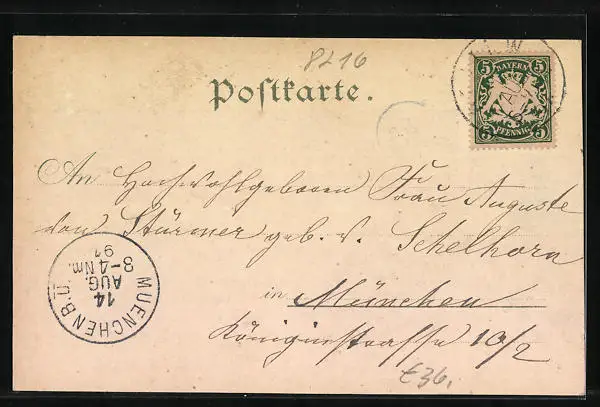 8216
Postkarte.
5 BAYERN 5
5 PFENNIG 5
An Hochwohlgeboren Frau Auguste
von Stürmer geb. v. Schelhorn
in München
Königinstrasse 10/2
MUENCHEN B.II.
14
AUG.
3-4 Nm.
97
€36,